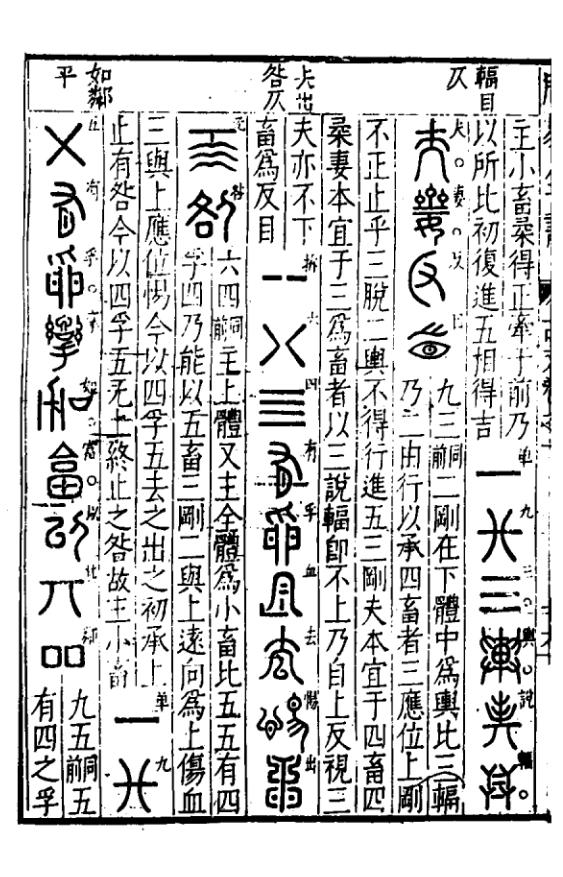 輻目
主小畜柔得正牽于前乃
以所比初復進五相得吉
单九三。輿說輻。
夫。妻。反目
九三同前二剛在下體中爲輿比三輻
乃二由行以承四畜者三應位上剛
不正止乎三脫二輿不得行進五三剛夫本宜于四畜四
柔妻本宜于三爲畜者以三說輻卽不上乃自上反視三
夫亦不下
畜爲反目
拆六四有孚血去惕出
无咎
六四同前主上體又主全體爲小畜比五五有四
孚四乃能以五畜三剛二與上遠向爲上傷血
三與上應位惕今以四孚五去之出之初承上
止有咎今以四孚五无上終止之咎故主小畜
单九
五有孚。攣如。富。以
鄰
九五同前五
有四之孚
如鄰
平